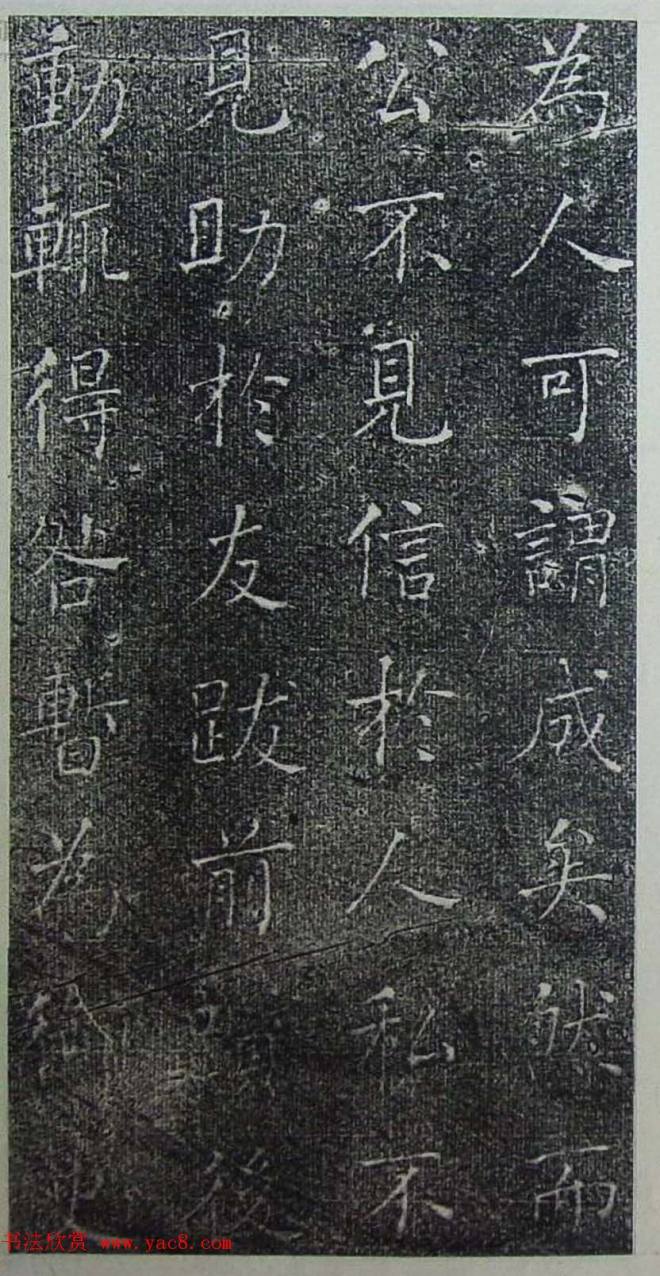 為人可謂成矣然而
公不見信於人私不
見助於友跋前躓後
動輒得咎暫為御史
书法欣赏 www.yac8.com